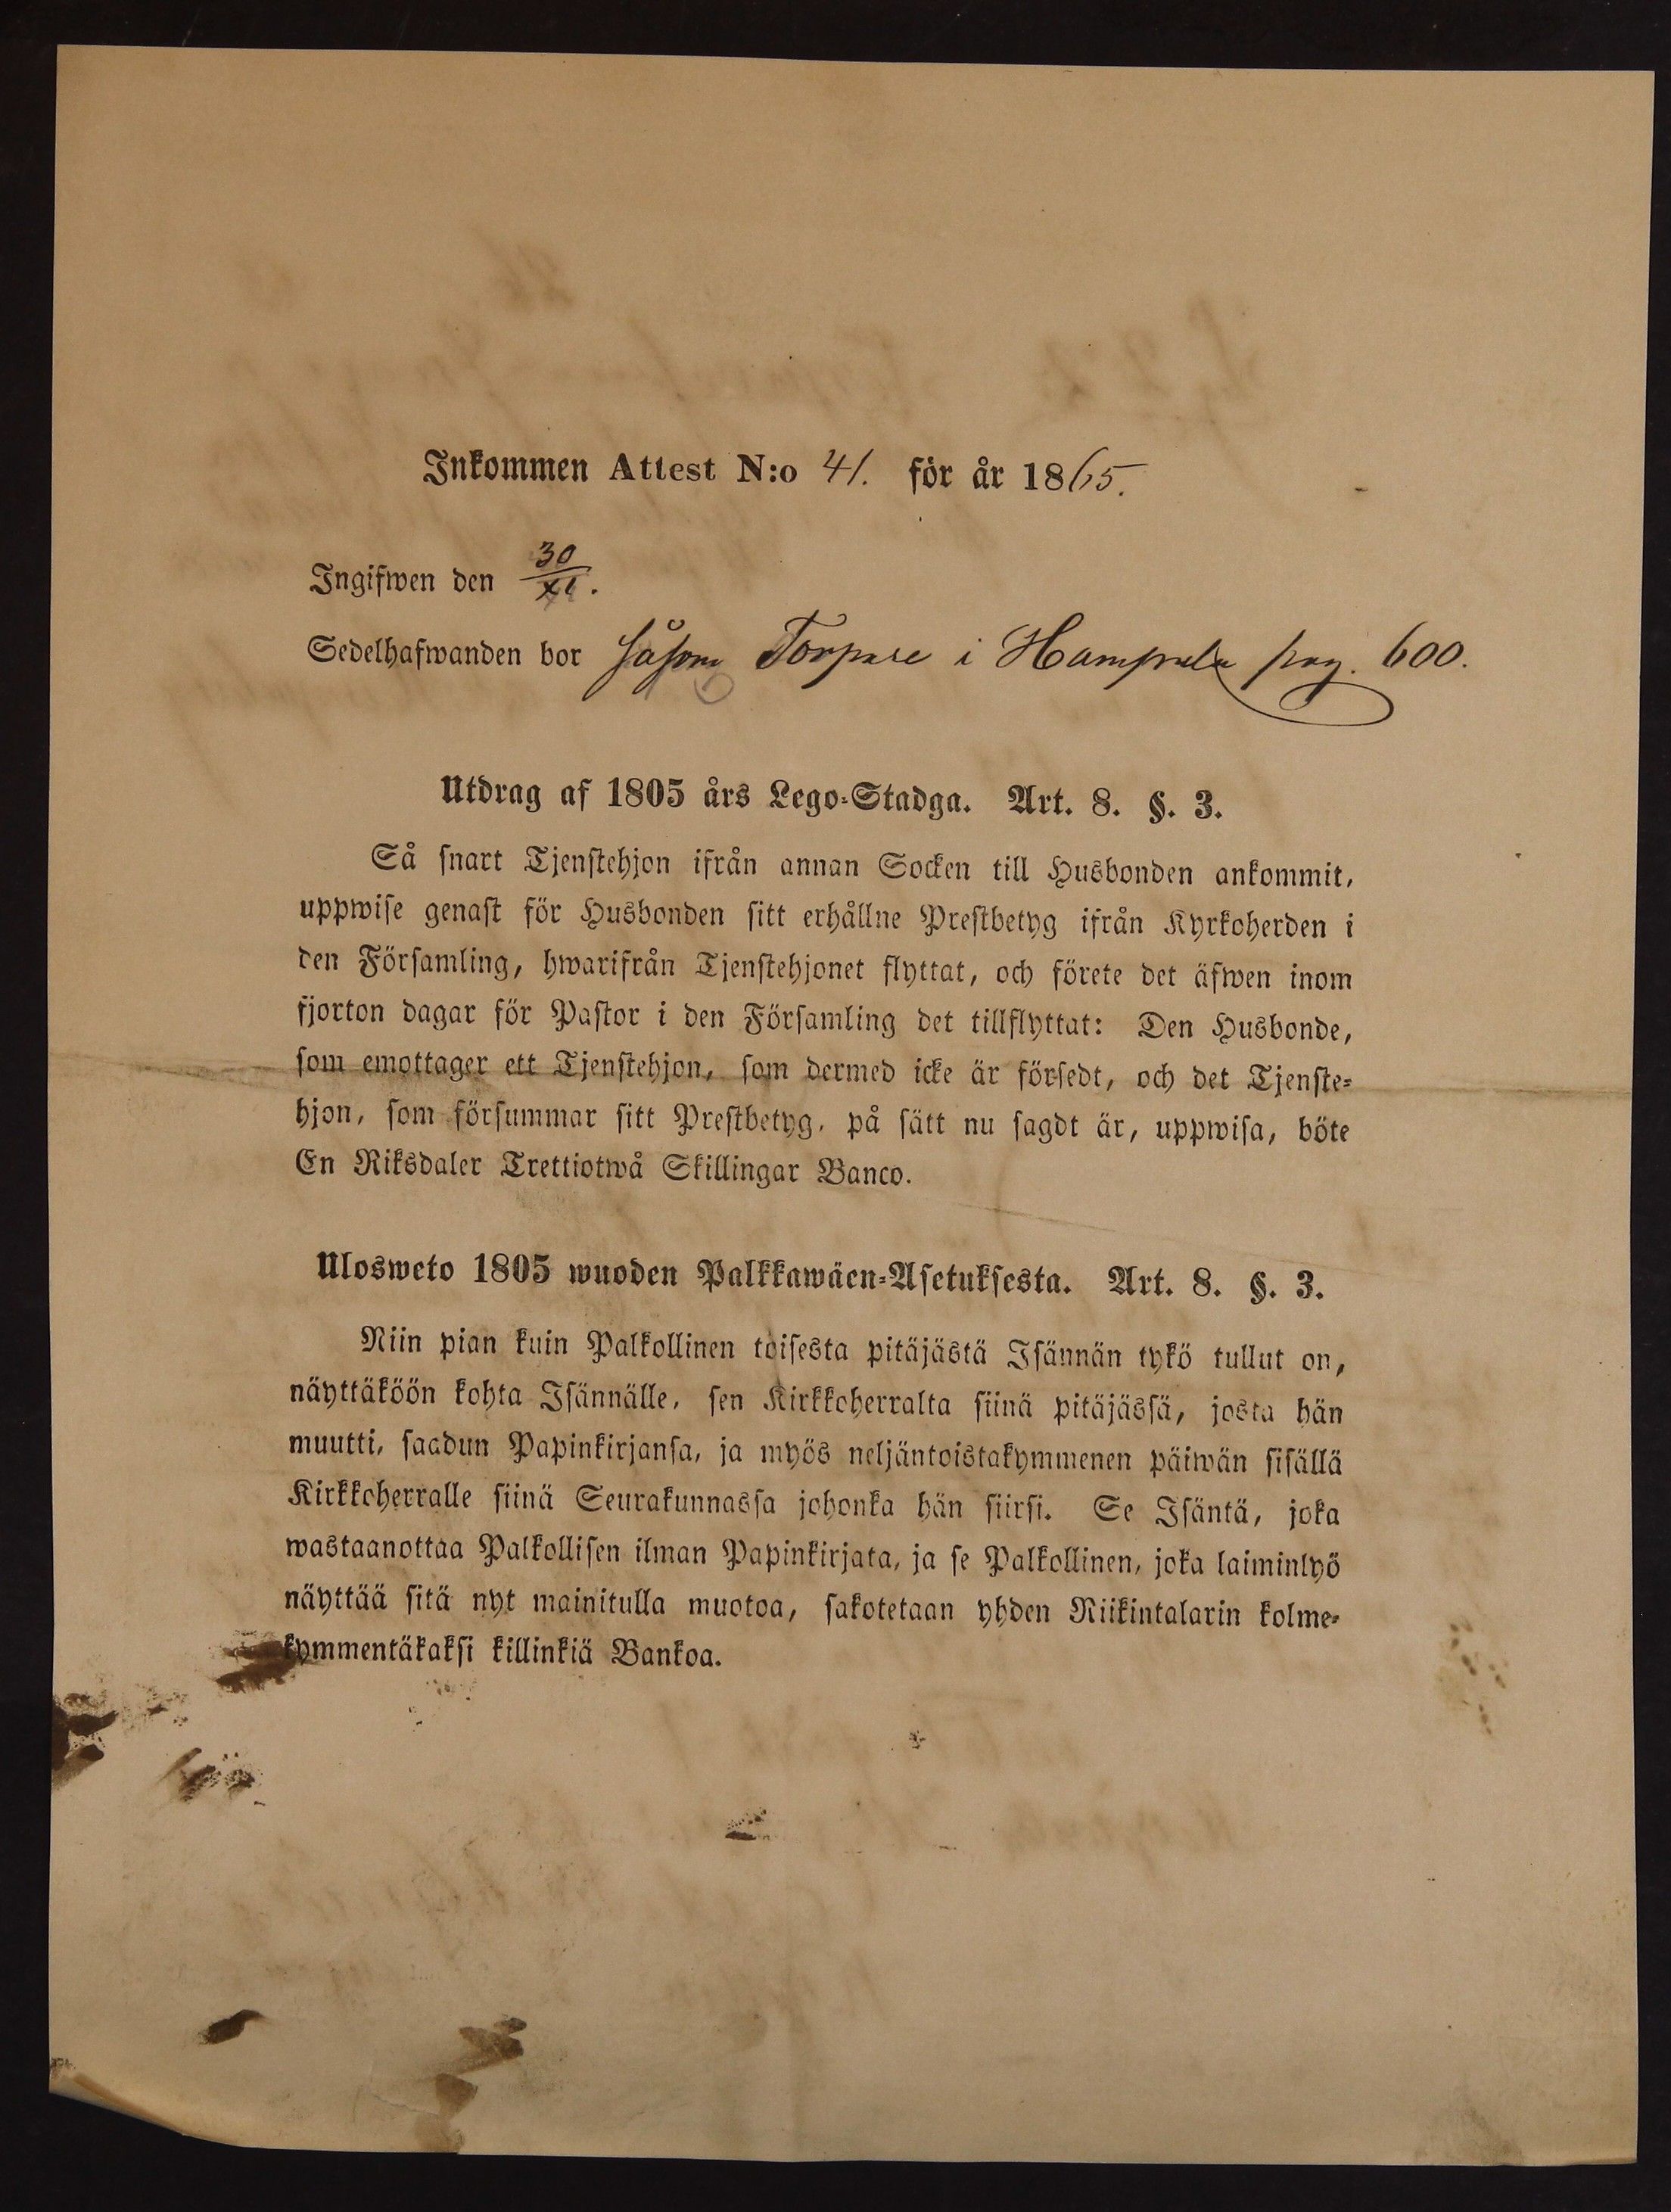 Inkommen Attest N:o 41. för år 1865.
Ingifwen den 30/XI.
Sedelhafwanden bor såsom Torpare i Hampula pag. 600.
Utdrag af 1805 års Lego-Stadga. Art. 8. §. 3.
Så snart Tjenstehjon ifrån annan Socken till Husbonden ankommit,
uppwise genast för Husbonden sitt erhållne Prestbetyg ifrån Kyrkoherden i
den Församling, hwarifrån Tjenstehjonet flyttat, och förete det äfwen inom
fjorton dagar för Pastor i den Församling det tillflyttat: Den Husbonde,
som emottager ett Tjenstehjon, som dermed icke är försedt, och det Tjenste-
hjon, som försummar sitt Prestbetyg, på sätt nu sagdt är, uppwisa, böte
En Riksdaler Trettiotwå Skillingar Banco.
Ulosweto 1805 wuoden Palkkawäen-Asetuksesta. Art. 8. §. 3.
Niin pian kuin Palkollinen toisesta pitäjästä Isännän tykö tullut on,
näyttäköön kohta Isännälle, sen Kirkkoherralta siinä pitäjässä, josta hän
muutti, saadun Papinkirjansa, ja myös neljäntoistakymmenen päiwän sisällä
Kirkkoherralle siinä Seurakunnassa johonka hän siirsi. Se Isäntä, joka
wastaanottaa Palkollisen ilman Papinkirjata, ja se Palkollinen, joka laiminlyö
näyttää sitä nyt mainitulla muotoa, sakotetaan yhden Riikintalarin kolme-
kymmentäkaksi killinkiä Bankoa.